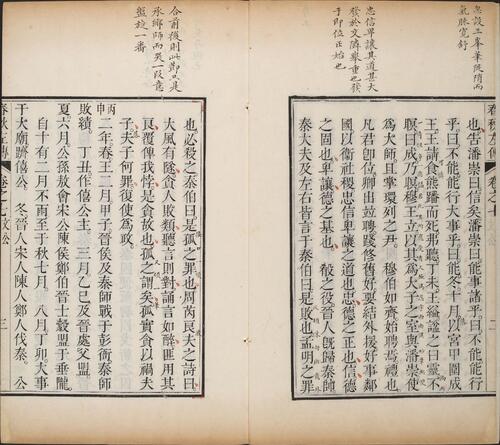 氣脉寬舒
忠信卑讓其道甚大
于即位正始也
也告潘崇曰信矣潘崇曰能事諸乎曰不能能行
乎曰不能能行大事乎曰能冬十月以宮甲圍成
王王請食熊蹯而死弗聽丁未王縊諡之曰靈不
瞑曰成乃瞑穆王立以其為大子之室與潘崇使
為大師且掌環列之尹 穆伯如齊始聘焉禮也
凡君卽位卿出竝聘踐修舊好要結外援好事鄰
國以衞社稷忠信卑讓之道也忠德之正也信德
之固也卑讓德之基也 殽之役晉人旣歸秦帥
秦大夫及左右皆言于秦伯曰是敗也孟明之罪
春秋左傳 卷之七 文公 三
合前後則此節只是
承鄉師而哭一段意
盤旋一番
也必殺之秦伯曰是孤之罪也周芮良夫之詩曰
大風有隧貪人敗類聽言則對誦言如醉匪用其
良覆俾我悖是貪故也孤之謂矣孤實貪以禍夫
子夫子何罪復使為政
丙申 二年春王二月甲子晉侯及秦師戰于彭衙秦師
敗績 丁丑作僖公主 三月乙巳及晉處父盟
夏六月公孫敖會宋公陳侯鄭伯晉士縠盟于垂隴
自十有二月不雨至于秋七月 八月丁卯大事
于大廟躋僖公 冬晉人宋人陳人鄭人伐秦 公